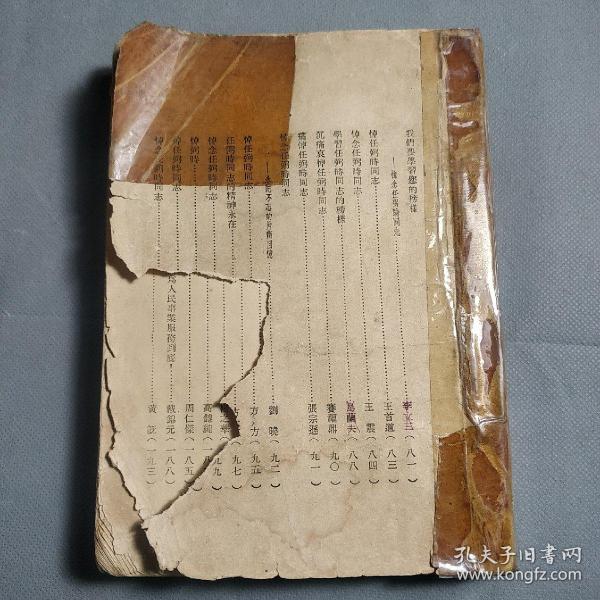 我們要學習您的榜樣
——悼念任弼時同志……李先念（八一）
悼任弼時同志……王首道（八三）
悼念任弼時同志……王震（八四）
學習任弼時同志的榜樣……烏蘭夫（八八）
沉痛哀悼任弼時同志……賽福鼎（九〇）
痛悼任弼時同志……張宗遜（九一）
悼念任弼時同志
劉曉（九二）
悼任弼時同志……方方（九五）
任弼時同志的精神永在……（九七）
悼念任弼時同志……（九九）
悼弼時……
周仁傑（一八五）
悼任弼時同志
戴錦元（一八八）
爲人民事業服務到底！
黃（一九三）
孔夫子旧书网
www.kongfz.com